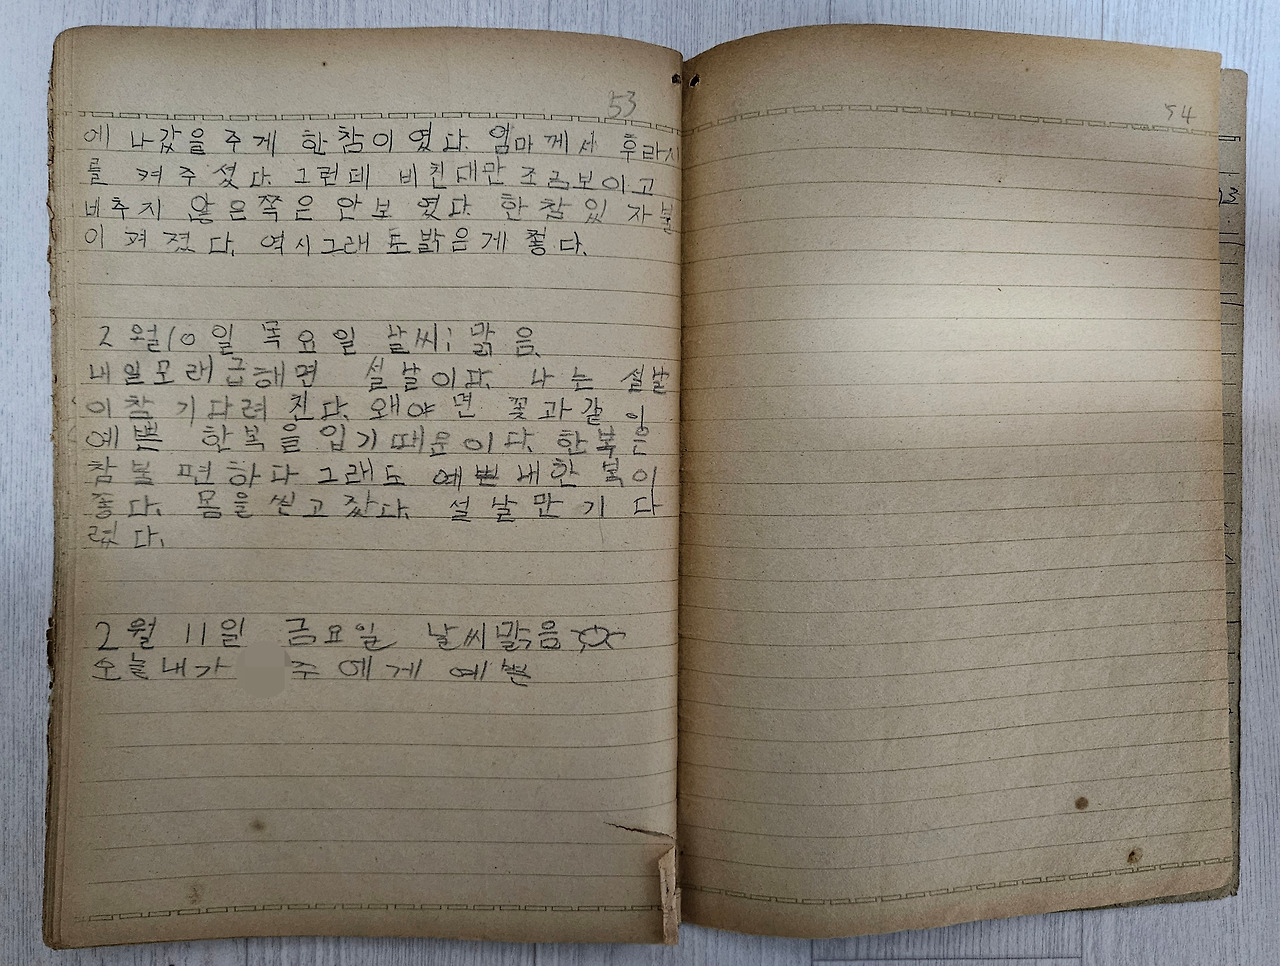 53
에 나갔을 주게 한참이 였다. 엄마께서 후라시
를 켜 주 셨다. 그런데 비친대만 조금보이고
비추지 않은쪽은 안 보 였다. 한참있 자불
이 켜 졌 다. 역시그래 도밝음게 좋다.
2월10일 목요일 날씨; 맑음.
내일모래급해면 설날이다. 나는 설날
이참 기다려 진다. 왜야면 꽃과같이
예쁜 한복을 입기때문이다. 한복은
참 불편하다 그래도 예쁜 내한 복이
좋다. 몸을 씯고 잤다. 설날만 기 다
렸다.
2월 11일 금요일 날씨맑음
오늘내가 주에게 예쁜
54